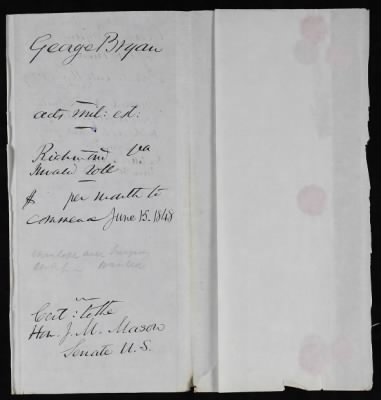 George Bryan
acts mil: est:
Richmond. Va
Invalid Roll
$ per month to
commence June 15. 1848
Cert: to the
Hon. J. M. Mason
Senate U.S.